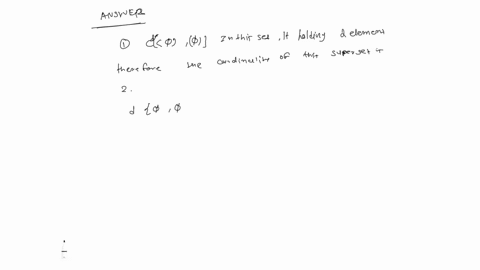 ANSWER
① d{<φ>, (φ)] In this set, It holding 2 element
therefore the cardinality of this superset is
2.
d {φ , φ